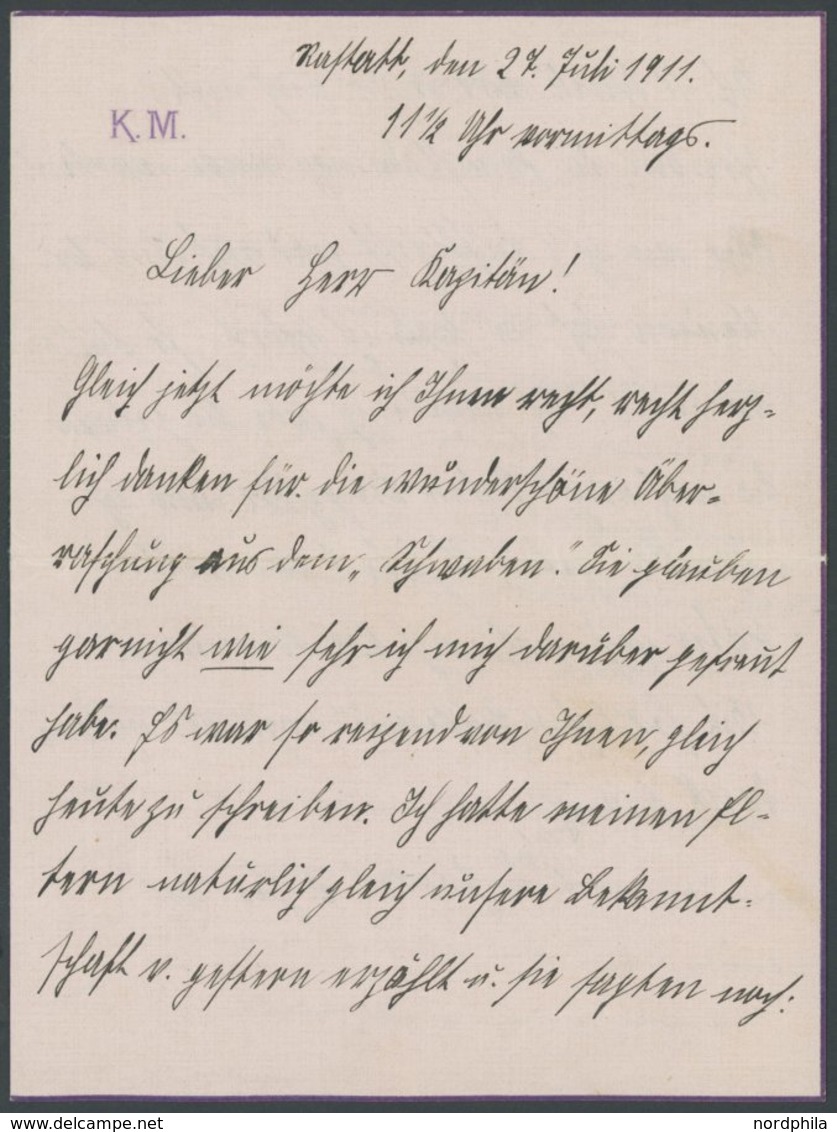 Rastatt, den 27. Juli 1911.
K. M.
11 1/2 Uhr vormittags.
Lieber Herr Kapitän!
Gleich jetzt möchte ich Ihnen recht, recht herz-
lich danken für die wunderschöne Über-
raschung aus dem „Schwaben." Sie glauben
garnicht wie sehr ich mich darüber gefreut
habe. Es war so reizend von Ihnen, gleich
heute zu schreiben. Ich hatte meinen El-
tern natürlich gleich unsere Bekannt-
schaft v. gestern erzählt u. sie sagten noch:
nordphila